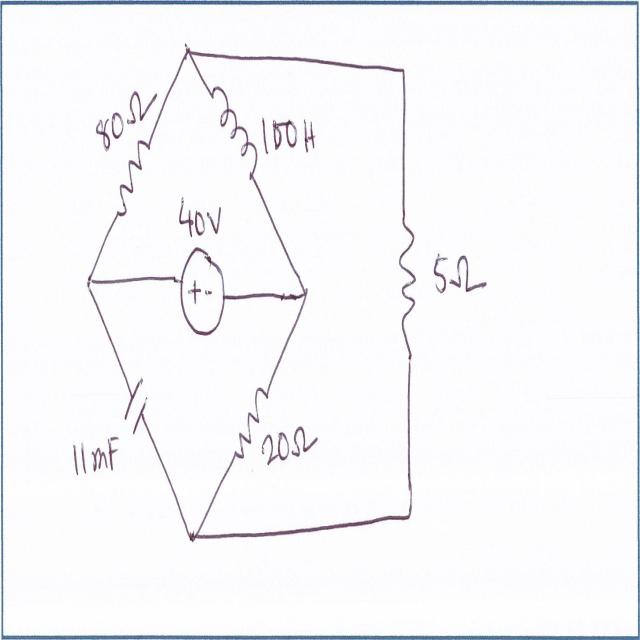 80Ω
100H
40V
+-
5Ω
11mF
20Ω